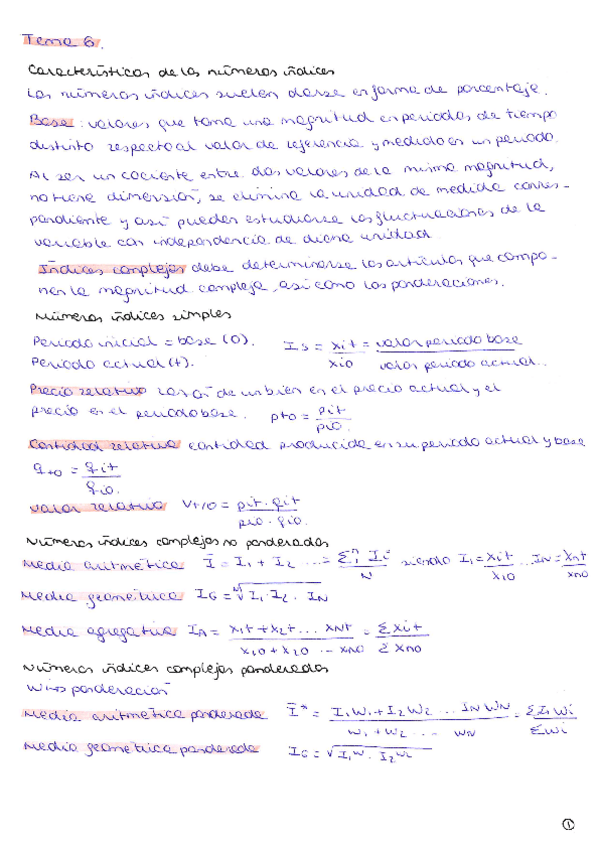 Tema 6.
Características de los números índices
Los números índices suelen darse en forma de porcentaje.
Base: valores, que toma una magnitud en periodos de tiempo
distinto respecto al valor de referencia y medido en un periodo.
Al ser un cociente entre dos valores de la misma magnitud,
no tiene dimensión, se elimina la unidad de medida corres-
pondiente y así pueden estudiarse las fluctuaciones de la
variable con independencia de dicha unidad.
Índices complejos debe determinarse los artículos que compo-
nen la magnitud compleja, así como las ponderaciones.
Números índices simples
Periodo inicial = base (0). Is = xit/xi0 = valor periodo base/valor periodo actual.
Periodo actual (t).
Precio relativo razón de un bien en el precio actual y el
precio en el periodo base. pt0 = pit/pi0.
Cantidad relativa cantidad producida en su periodo actual y base
qt0 = qit/qi0.
Valor relativo Vt/0 = pit · qit/pi0 · qi0.
Números índices complejos no ponderados
Media aritmética Ī = I1 + I2 ... = Σ Ii/N siendo I1 = xit/x10 ... IN = xnt/xn0
Media geométrica IG = ᴺ√I1 · I2 · IN
Media agregativa IA = x1t + x2t + ... xNt/x10 + x20 ... xn0 = Σ xit/Σ xn0
Números índices complejos ponderados
Wi = ponderación
Media aritmética ponderada Ī* = I1W1 + I2W2 ... INWN/W1 + W2 ... WN = Σ IiWi/ΣWi
Media geométrica ponderada IG = √I1W · I2W2
1